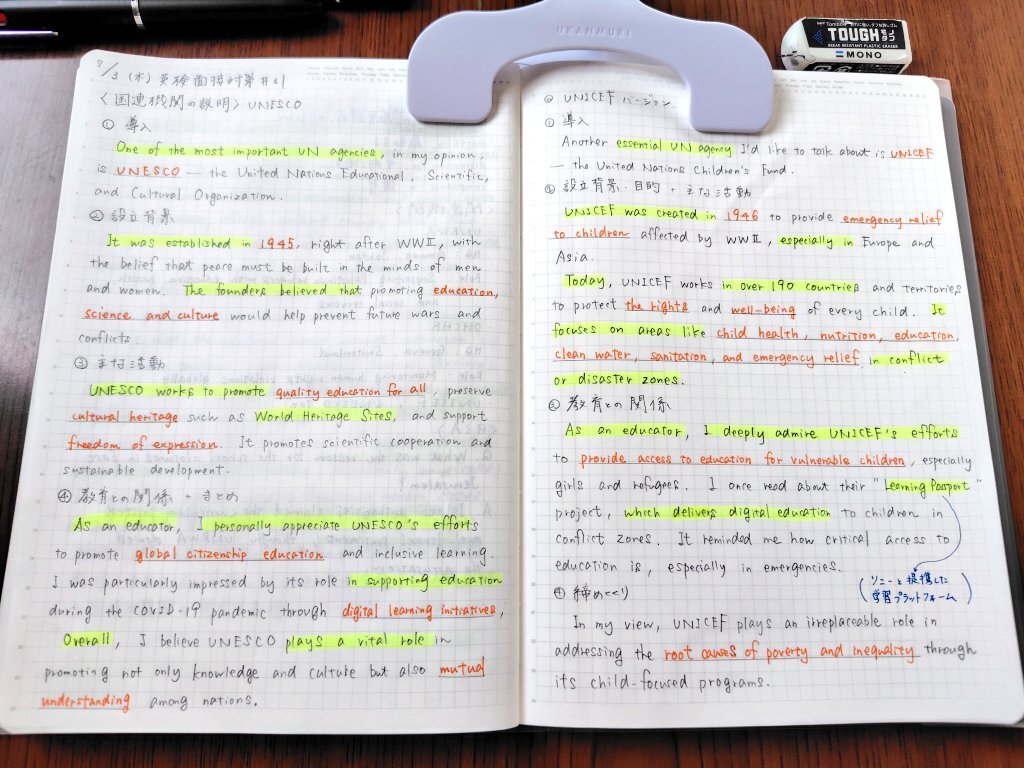 7/3 (木) 英検面接対策 #61
〈国連機関の説明〉 UNESCO
① 導入
One of the most important UN agencies, in my opinion,
is UNESCO — the United Nations Educational, Scientific,
and Cultural Organization.
② 設立背景
It was established in 1945, right after WWⅡ, with
the belief that peace must be built in the minds of men
and women. The founders believed that promoting education,
science and culture would help prevent future wars and
conflicts.
③ 主な活動
UNESCO works to promote quality education for all, preserve
cultural heritage such as World Heritage Sites, and support
freedom of expression. It promotes scientific cooperation and
sustainable development.
④ 教育との関係 + まとめ
As an educator, I personally appreciate UNESCO's efforts
to promote global citizenship education and inclusive learning.
I was particularly impressed by its role in supporting education
during the COVID-19 pandemic through digital learning initiatives,
Overall, I believe UNESCO plays a vital role in
promoting not only knowledge and culture but also mutual
understanding among nations.
UKANMURI
Tombow
TOUGH
BREAK RESISTANT PLASTIC ERASER
MONO
◎ UNICEF バージョン
① 導入
Another essential UN agency I'd like to talk about is UNICEF
— the United Nations Children's Fund.
② 設立背景・目的 + 主な活動
UNICEF was created in 1946 to provide emergency relief
to children affected by WWⅡ, especially in Europe and
Asia.
Today, UNICEF works in over 190 countries and territories
to protect the rights and well-being of every child. It
focuses on areas like child health, nutrition, education,
clean water, sanitation, and emergency relief in conflict
or disaster zones.
③ 教育との関係
As an educator, I deeply admire UNICEF's efforts
to provide access to education for vulnerable children, especially
girls and refugees. I once read about their "Learning Passport"
project, which delivers digital education to children in
conflict zones. It reminded me how critical access to
education is, especially in emergencies.
(ソニーと提携した
学習プラットフォーム)
④ 締めくくり
In my view, UNICEF plays an irreplaceable role in
addressing the root causes of poverty and inequality through
its child-focused programs.